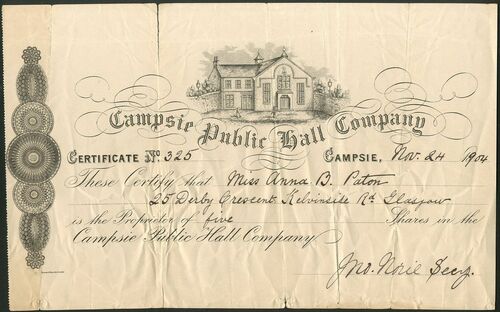 Campsie Public Hall Company
CERTIFICATE No. 325 CAMPSIE, Nov. 24 1904
These Certify that Miss Anna B. Paton
25 Derby Crescent Kelvinside Rd. Glasgow
is the Proprietor of five Shares in the
Campsie Public Hall Company
Jno. Nail Secy.